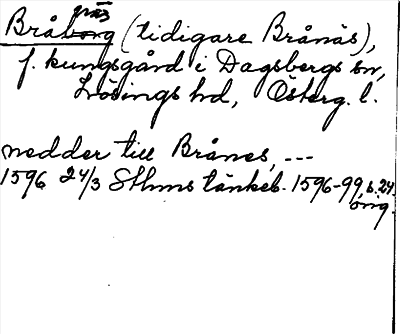 näs
Bråborg (tidigare Brånäs),
f. kungsgård i Dagsbergs sn,
Lösings hd, Österg. l.
nedder till Brånes, ---
1596 24/3 Sthms tänkeb. 1596-99, s. 24.
orig.